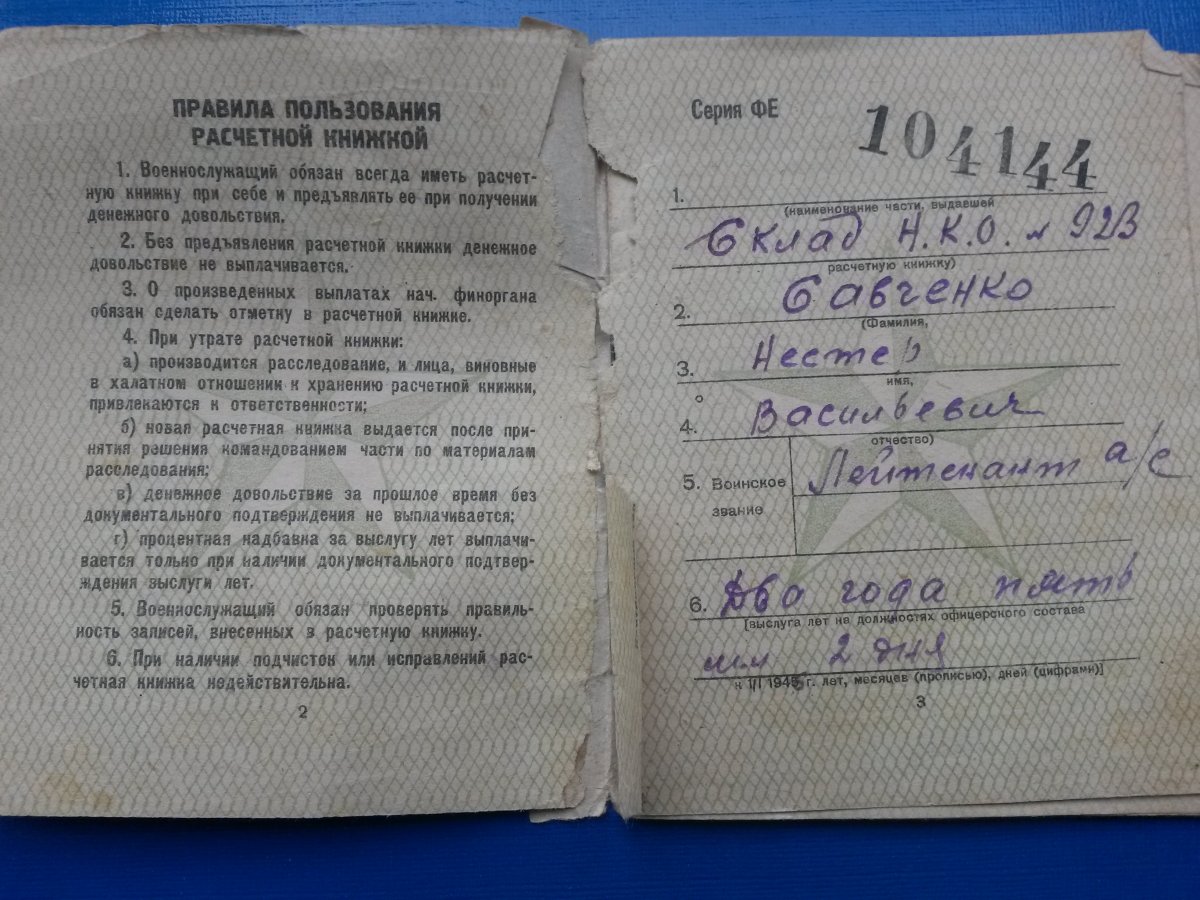 ПРАВИЛА ПОЛЬЗОВАНИЯ
РАСЧЕТНОЙ КНИЖКОЙ
1. Военнослужащий обязан всегда иметь расчет-
ную книжку при себе и предъявлять ее при получении
денежного довольствия.
2. Без предъявления расчетной книжки денежное
довольствие не выплачивается.
3. О произведенных выплатах нач. финоргана
обязан сделать отметку в расчетной книжке.
4. При утрате расчетной книжки:
а) производится расследование, и лица, виновные
в халатном отношении к хранению расчетной книжки,
привлекаются к ответственности;
б) новая расчетная книжка выдается после при-
нятия решения командованием части по материалам
расследования;
в) денежное довольствие за прошлое время без
документального подтверждения не выплачивается;
г) процентная надбавка за выслугу лет выплачи-
вается только при наличии документального подтвер-
ждения выслуги лет.
5. Военнослужащий обязан проверять правиль-
ность записей, внесенных в расчетную книжку.
6. При наличии подчисток или исправлений рас-
четная книжка недействительна.
2
Серия ФЕ 104144
1.
(наименование части, выдавшей
Склад Н.К.О. № 923
расчетную книжку)
2. Савченко
(Фамилия,
3. Нестер
имя,
4. Васильевич
отчество)
5. Воинское Лейтенант а/с
звание
6. Два года пять
[выслуга лет на должностях офицерского состава
2 дня
к I/I 1945 г. лет, месяцев (прописью), дней (цифрами)]
3